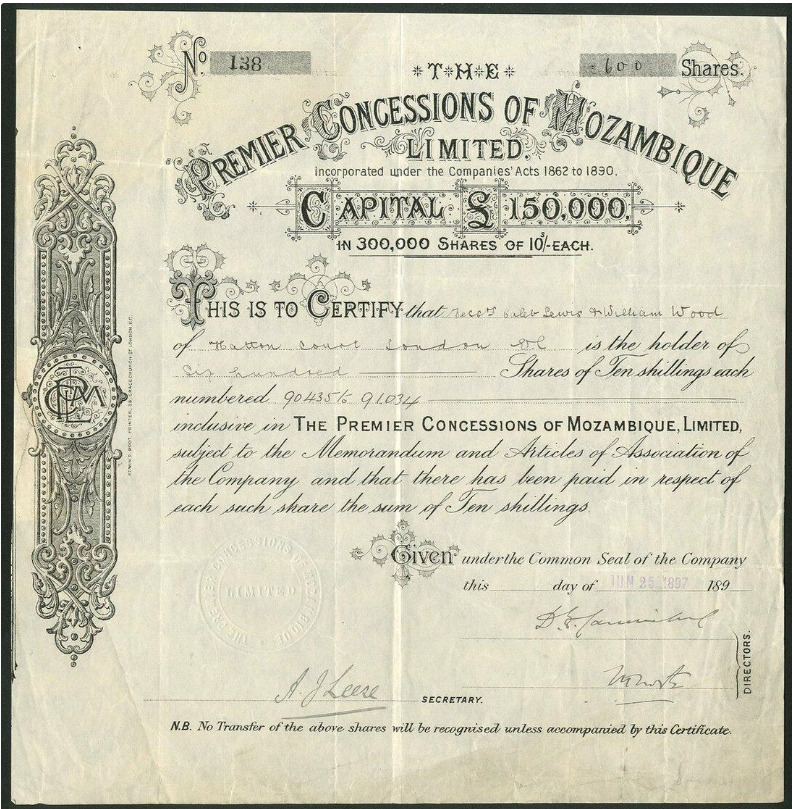 No. 138
600 Shares.
THE
PREMIER CONCESSIONS OF MOZAMBIQUE
LIMITED.
Incorporated under the Companies' Acts 1862 to 1890.
CAPITAL £150,000,
IN 300,000 SHARES OF 10/- EACH.
THIS IS TO CERTIFY that Lewis & William Wood
of Hatton Court London is the holder of
Six hundred Shares of Ten shillings each
numbered 90435 to 91.034
inclusive in THE PREMIER CONCESSIONS OF MOZAMBIQUE, LIMITED,
subject to the Memorandum and Articles of Association of
the Company and that there has been paid in respect of
each such share the sum of Ten shillings.
Given under the Common Seal of the Company
this day of JUN 25 1897 189
LIMITED
DIRECTORS.
A. J Leese SECRETARY.
N.B. No Transfer of the above shares will be recognised unless accompanied by this Certificate.